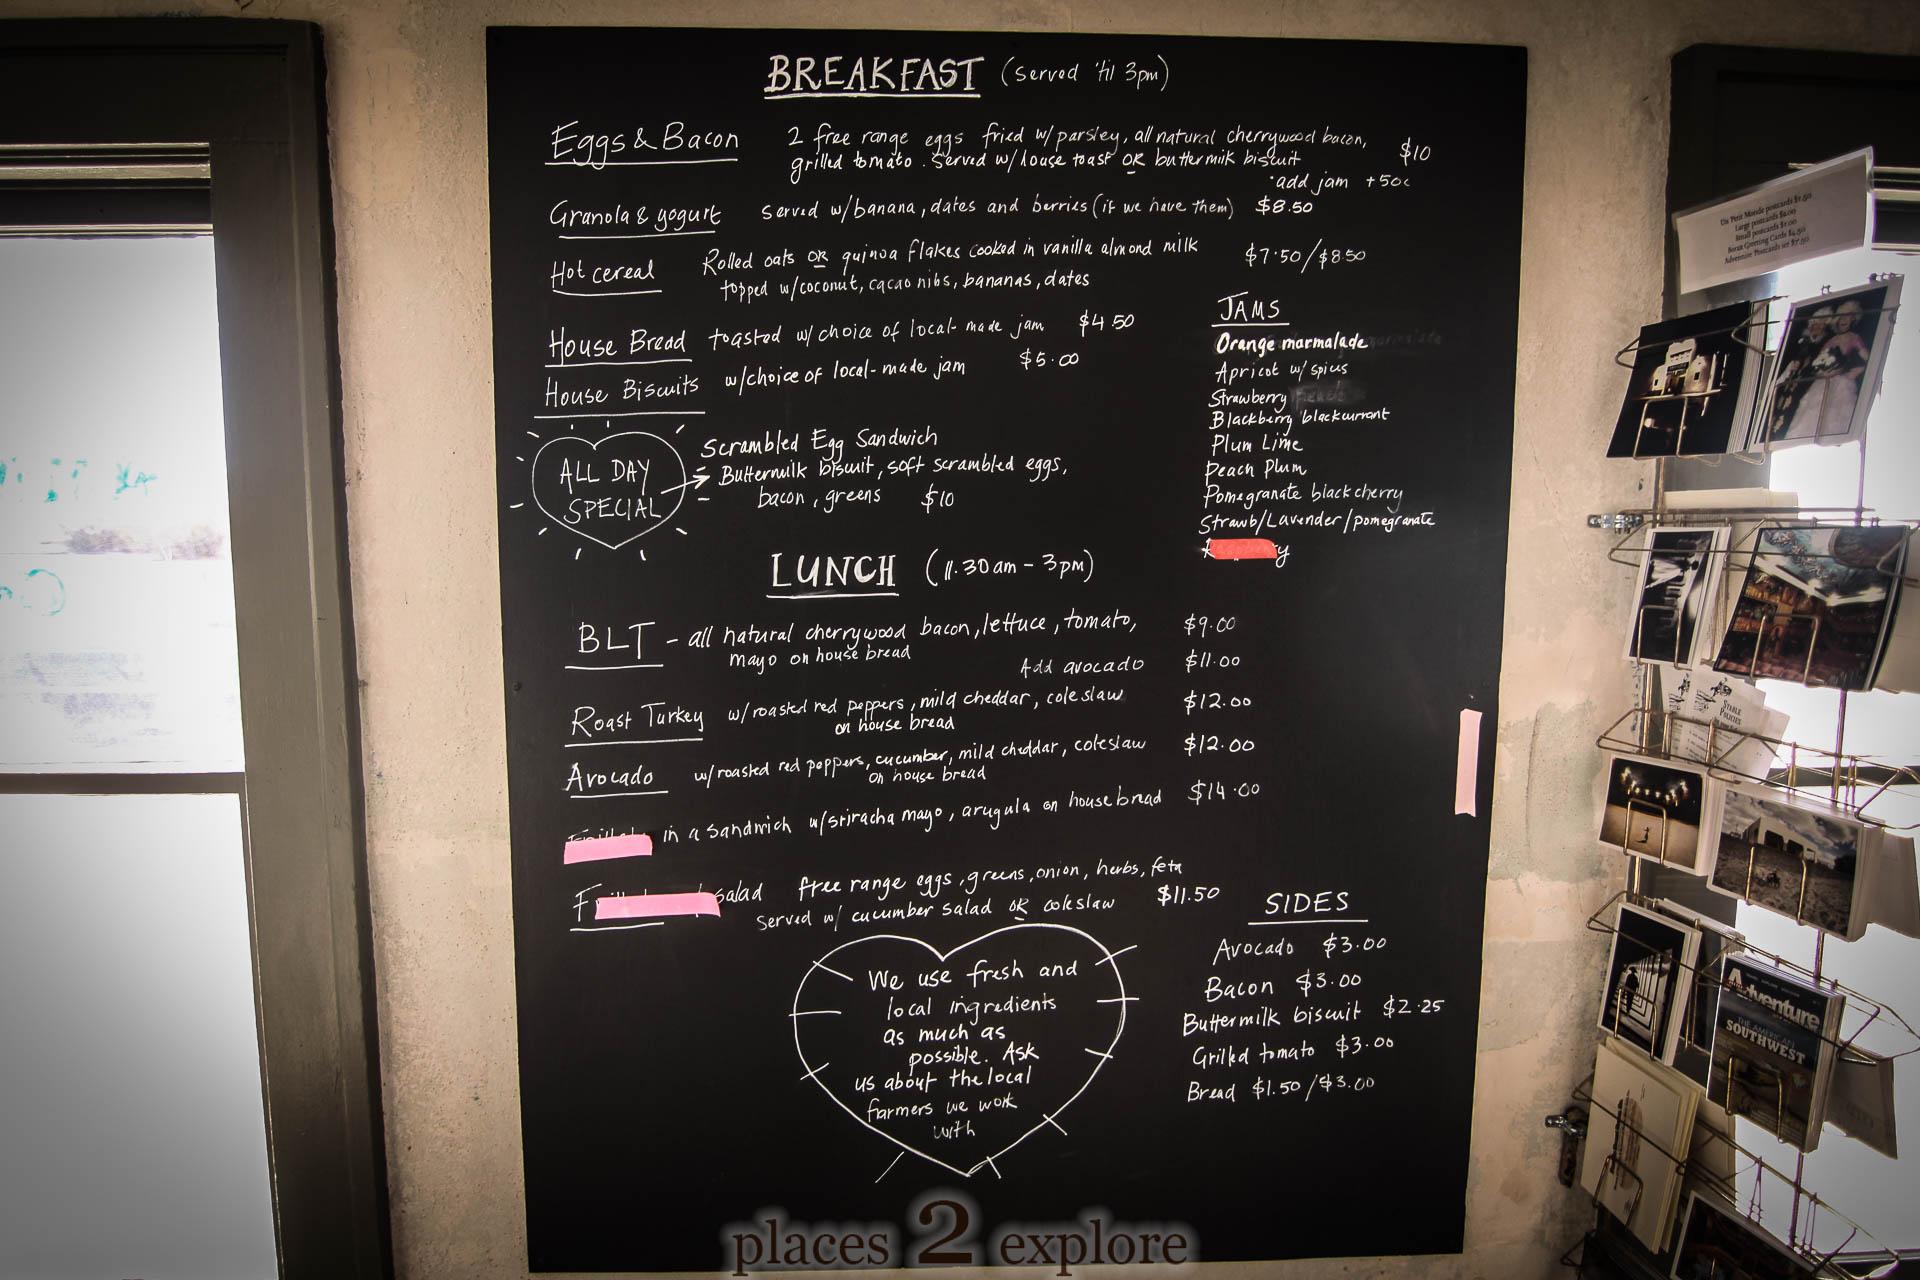 BREAKFAST (served 'til 3pm)
Eggs & Bacon 2 free range eggs fried w/parsley, all natural cherrywood bacon,
grilled tomato. Served w/house toast OR buttermilk biscuit $10
·add jam +50c
Granola & yogurt served w/banana, dates and berries (if we have them) $8.50
Hot cereal Rolled oats OR quinoa flakes cooked in vanilla almond milk $7.50/$8.50
topped w/coconut, cacao nibs, bananas, dates
House Bread toasted w/choice of local-made jam $4.50
House Biscuits w/choice of local-made jam $5.00
JAMS
Orange marmalade
Apricot w/ spices
Strawberry
Blackberry blackcurrant
Plum Lime
Peach Plum
Pomegranate black cherry
Strawb/Lavender/pomegranate
ALL DAY
SPECIAL
Scrambled Egg Sandwich
Buttermilk biscuit, soft scrambled eggs,
bacon, greens $10
LUNCH (11.30am - 3pm)
BLT - all natural cherrywood bacon, lettuce, tomato, $9.00
mayo on house bread
Add avocado $11.00
Roast Turkey w/roasted red peppers, mild cheddar, coleslaw $12.00
on house bread
Avocado w/roasted red peppers, cucumber, mild cheddar, coleslaw $12.00
on house bread
in a sandwich w/sriracha mayo, arugula on house bread $14.00
salad free range eggs, greens, onion, herbs, feta
served w/ cucumber salad OR coleslaw $11.50
SIDES
Avocado $3.00
Bacon $3.00
Buttermilk biscuit $2.25
Grilled tomato $3.00
Bread $1.50/$3.00
We use fresh and
local ingredients
as much as
possible. Ask
us about the local
farmers we work
with
Un Petit Monde postcards $1.50
Large postcards $2.00
Small postcards $1.00
Borax Greeting Cards $4.50
Adventure Postcards set $7.50
STABLE
POLICIES
Adventure
THE AMERICAN
SOUTHWEST
places 2 explore